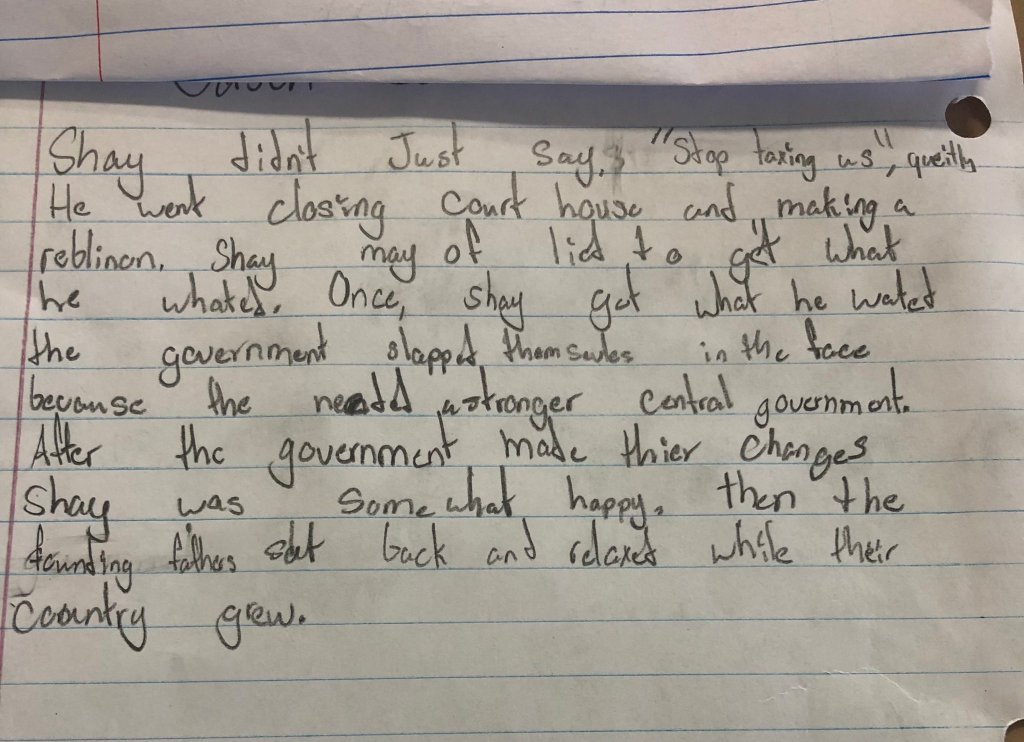 Shay didn't Just say, "Stop taxing us", queitly
He went closing court house and making a
reblinon. Shay may of lied to get what
he whated. Once, shay got what he wated
the government slapped themselves in the face
becuause the needed a stronger central government.
After the government made thier changes
Shay was somewhat happy. then the
founding fathers sat back and relaxed while their
country grew.